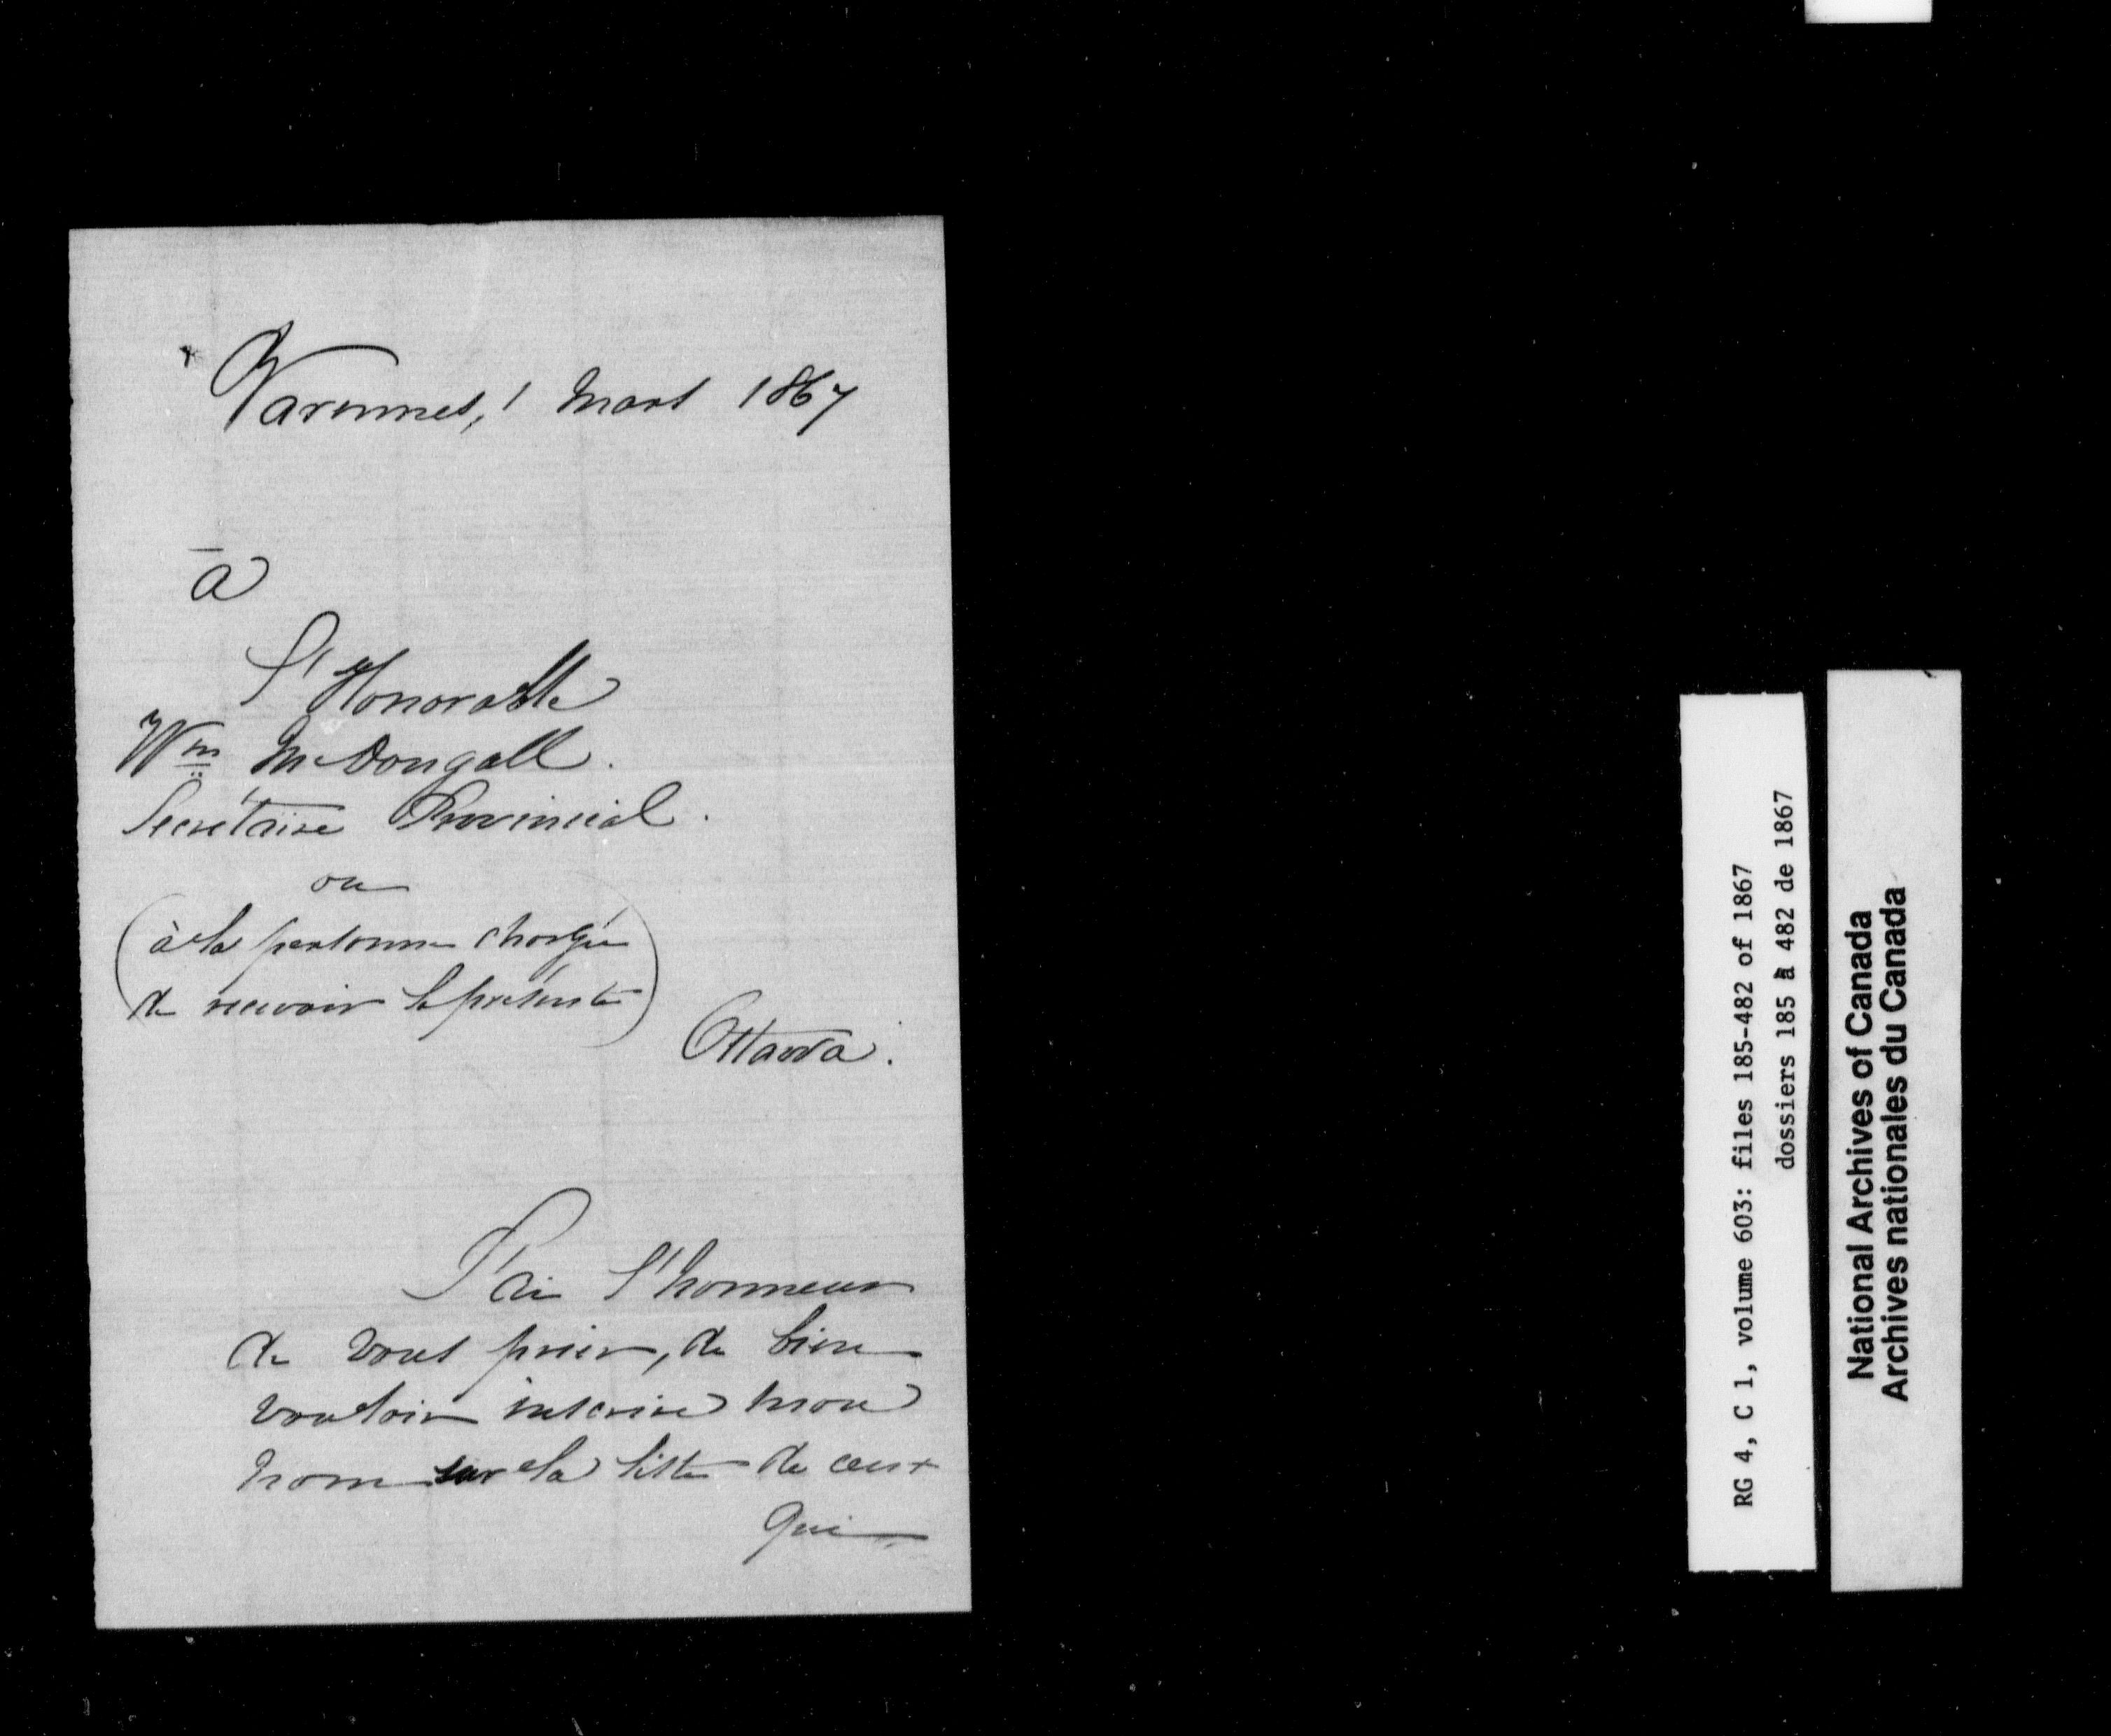 Varennes, 1 Mars 1867
à
L'Honorable
Wm McDougall.
Secrétaire Provincial.
ou
(à la personne chargée
de recevoir la présente)
Ottawa.
J'ai l'honneur
de vous prier, de bien
vouloir inscrire mon
nom sur la liste de ceux
qui
RG 4, C 1, volume 603: files 185-482 of 1867
dossiers 185 à 482 de 1867
National Archives of Canada
Archives nationales du Canada